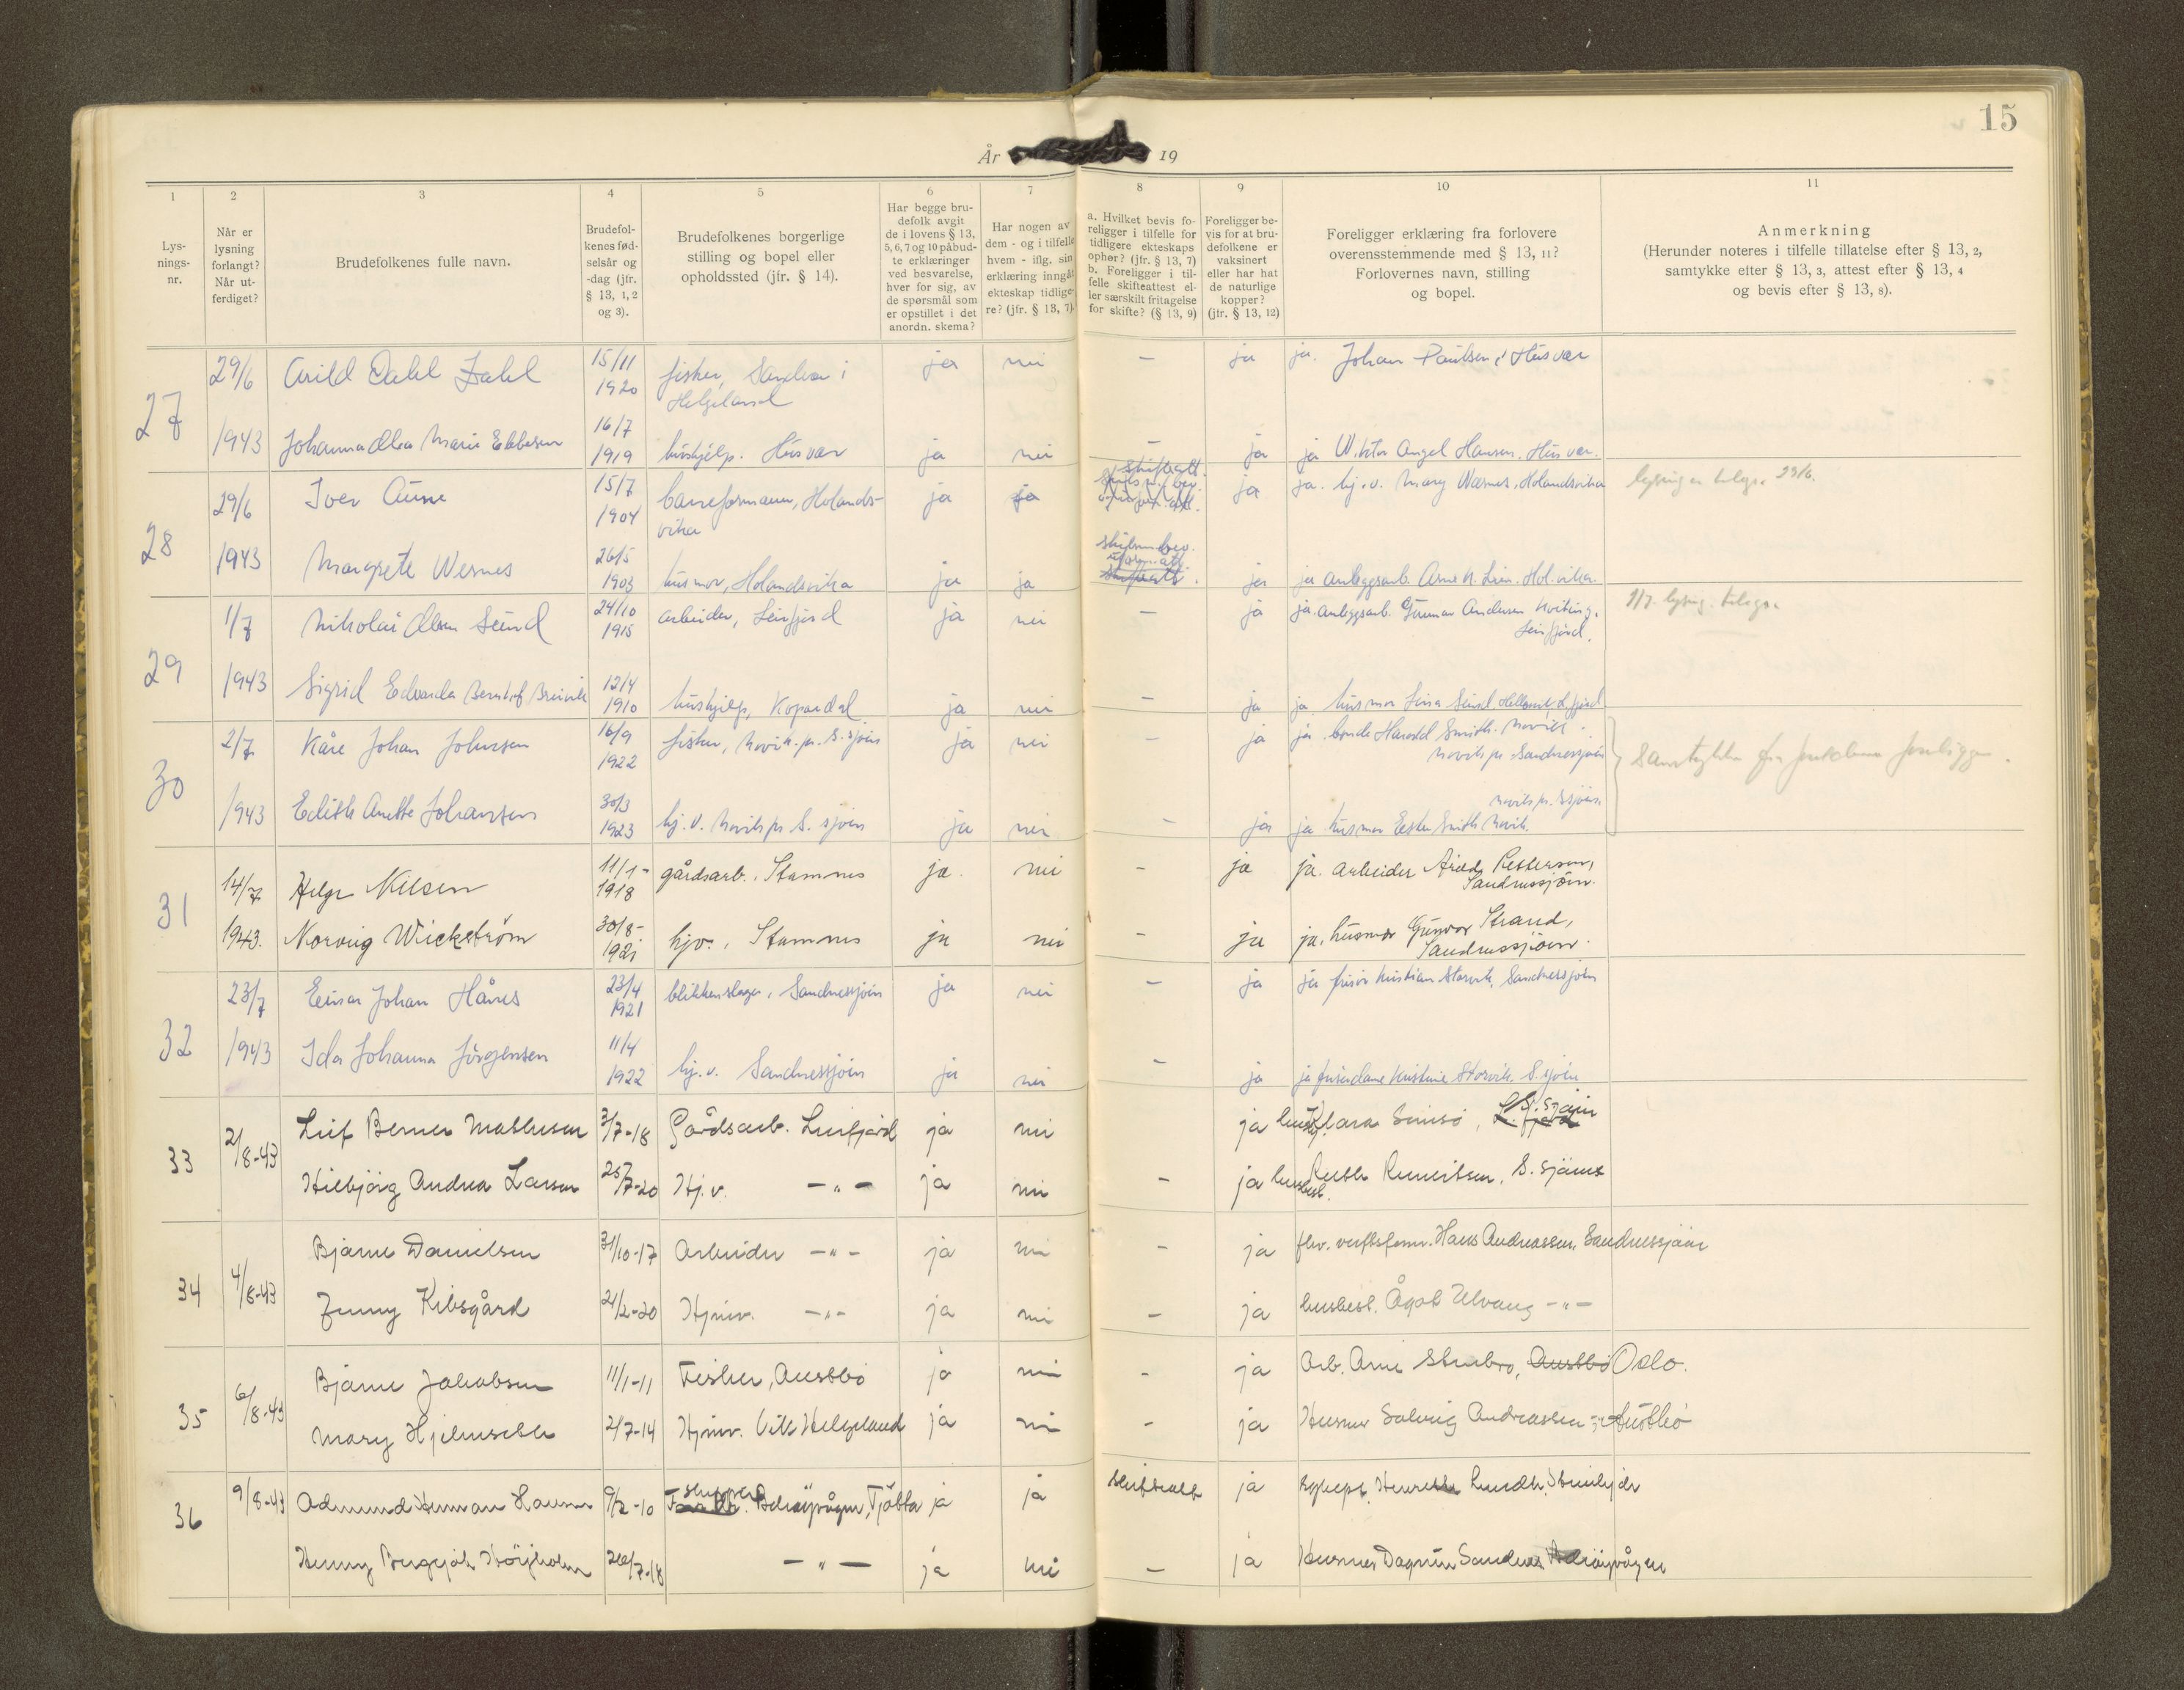 15
År 19
1 2 3 4 5 6 7 8 9 10 11
Lys-
nings-
nr.
Når er
lysning
forlangt?
Når ut-
ferdiget?
Brudefolkenes fulle navn.
Brudefol-
kenes fød-
selsår og
-dag (jfr.
§ 13, 1, 2
og 3).
Brudefolkenes borgerlige
stilling og bopel eller
opholdssted (jfr. § 14).
Har begge bru-
defolk avgit
de i lovens § 13,
5, 6, 7 og 10 påbud-
te erklæringer
ved besvarelse,
hver for sig, av
de spørsmål som
er opstillet i det
anordn. skema?
Har nogen av
dem - og i tilfelle
hvem - iflg. sin
erklæring inngått
ekteskap tidlige-
re? (jfr. § 13, 7)
a. Hvilket bevis fo-
religger i tilfelle for
tidligere ekteskaps
ophør? (jfr. § 13, 7)
b. Foreligger i til-
felle skifteattest el-
ler særskilt fritagelse
for skifte? (§ 13, 9)
Foreligger be-
vis for at bru-
defolkene er
vaksinert
eller har hat
de naturlige
kopper?
(jfr. § 13, 12)
Foreligger erklæring fra forlovere
overensstemmende med § 13, 11?
Forlovernes navn, stilling
og bopel.
Anmerkning
(Herunder noteres i tilfelle tillatelse efter § 13, 2,
samtykke efter § 13, 3, attest efter § 13, 4
og bevis efter § 13, 8).
27 29/6 Arild Dahl Zahl 15/11 1920 fisker, Sandvær i Helgeland ja nei - ja ja. Johan Paulsen, Husvær
1943 Johanna Olea Marie Ebbesen 16/7 1919 hushjelp. Husvær ja nei - ja ja Viktor Angel Hansen. Husvær.
28 29/6 Iver Aune 15/7 1904 baneformann, Holands-vika ja ja skifteatt. ja ja. hj.v. Mary Wærnes, Holandsvika lysning er tilegn. 29/6.
1943 Margrete Wernes 26/5 1903 husmor, Holandsvika ja ja ja ja anleggsarb. Arne N. Hol.vika
29 1/7 Nikolai Olsen Seind 24/10 1915 arbeider, Leirfjord ja nei - ja ja. anleggsarb. Gunnar Andersen Leirfjord. 1/7. lysning
1943 Sigrid Edvarda Breivik 12/4 1910 hushjelp, Kopardal ja nei - ja ja husmor
30 2/7 Kåre Johan Johnsen 16/9 1922 fisker, Novik pr. S.sjøen ja nei - ja ja. bonde Harald Smith. Novik pr. Sandnessjøen Samtykke fra foreldrene foreligger.
1943 Edith Anette Johansen 30/3 1923 hj.v. Novik pr S. sjøen ja nei - ja ja husmor Ester Smith Novik. Novik pr. S.sjøen.
31 14/7 Helge Nilsen 11/1- 1918 gårdsarb., Stamnes ja nei - ja ja. arbeider Arild Pettersen, Sandnessjøen.
1943. Norvug Wickström 30/8- 1921 hjv., Stamnes ja nei - ja ja. husmor Gunvor Strand, Sandnessjøen.
32 23/7 Einar Johan Hånes 23/4 1921 blikkenslager, Sandnessjøen ja nei - ja ja frisør Kristian Storvik, Sandnessjøen
1943 Ida Johanna Jørgensen 11/4 1922 hj.v. Sandnessjøen ja nei - ja ja frisørdame Kristine Storvik. S.sjøen
33 2/8-43 Leif Berner Mathisen 3/7-18 Gårdsarb. Leirfjord ja nei ja Klara Simsø, S. sjøen
Hilbjørg Andrea Larsen 25/7-20 Hj.v. -"- ja nei - ja Ruth S. sjøen
34 4/8-43 Bjarne Danielsen 31/10-17 Arbeider -"- ja nei - ja Hans Andreassen, Sandnessjøen
Jenny Kibsgård 21/2-20 Hjmv. -"- ja nei - ja husbest. Ågot Ulvang -"-
35 6/8-43 Bjarne Jakobsen 11/1-11 Fisker, Austbø ja nei - ja Arb. Arne Stenbro, Austbø Oslo.
Mary Hjelmseth 2/7-14 Hjmv. Vik Helgeland ja nei - ja Husmor Solveig Andreassen Austbø
36 9/8-43 Admund Herman Hansen 9/2-10 skipper Tjøtta ja ja skifteatt ja Lundh,
Henny Bergljot 26/7-18 -"- ja nei - ja Husmor Dagrun Sandnes